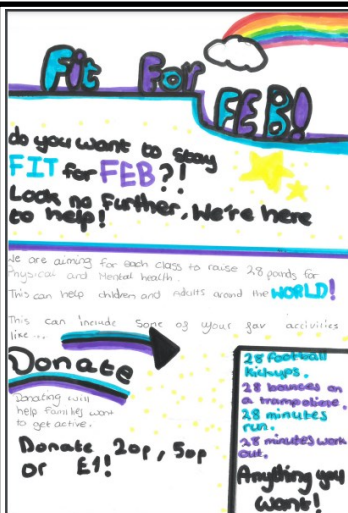 Fit For
FEB!
do you want to stay
FIT for FEB?!
Look no further, We're here
to help!
We are aiming for each class to raise 28 pounds for
Physical and Mental health.
This can help children and adults around the WORLD!
This can include some of your fav activities
like...
Donate
Donating will
help families want
to get active.
Donate 20p, 50p
or £1!
28 football
kickups.
28 bounces on
a trampoliene.
28 minutes
run.
28 minutes work
out.
Anything you
want!